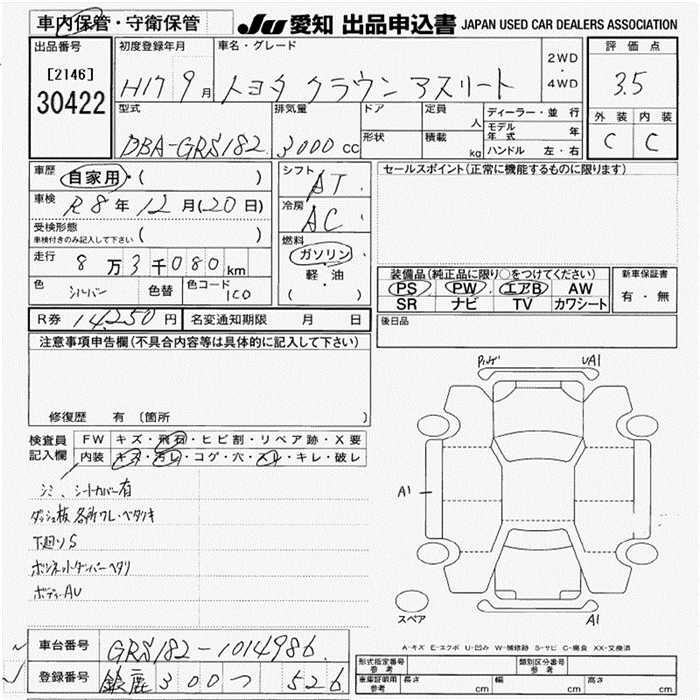 車内保管・守衛保管 JU 愛知 出品申込書 JAPAN USED CAR DEALERS ASSOCIATION
出品番号 初度登録年月 車名・グレード 2WD・4WD 評価点
[2146]
30422 H17 9月 トヨタ クラウン アスリート 3.5
型式 排気量 ドア 定員 人 ディーラー・並行 外装 内装
DBA-GRS182 3000cc 形状 積載 kg モデル年式 年 C C
ハンドル 左・右
車歴 自家用・( ) シフト AT セールスポイント(正常に機能するものに限ります)
車検 R8年12月(20日) 冷房 AC
受検形態 ( )
車検付きのみ記入して下さい
走行 8万3千080km 燃料 ガソリン・軽・油 ( )
装備品(純正品に限り○をつけてください) 新車保証書
色 シルバー 色替 色コード 1C0 PS PW エアB AW 有・無
SR ナビ TV カワシート
R券 14,250円 名変通知期限 月 日 後日品
注意事項申告欄(不具合内容等は具体的に記入して下さい)
修復歴 有 (箇所
検査員記入欄 FW キズ・飛石・ヒビ割・リペア跡・X要
内装 キズ・汚レ・コゲ・穴・スレ・キレ・破レ
シミ、シートカバー有
ダッシュ板 各所ワレ・ベタツキ
下廻りS
ボンネットダンパーヘタリ
ボディAU
UA1
A1
A1
スペア
A-キズ E-エクボ U-凹み W-補修跡 S-サビ C-腐食 XX-交換済
車台番号 GRS182-1014986
登録番号 鈴鹿 300 つ 526
形式指定番号 参考 類別区分番号 参考
車庫証明用 参考 長さ cm 幅 cm 高さ cm